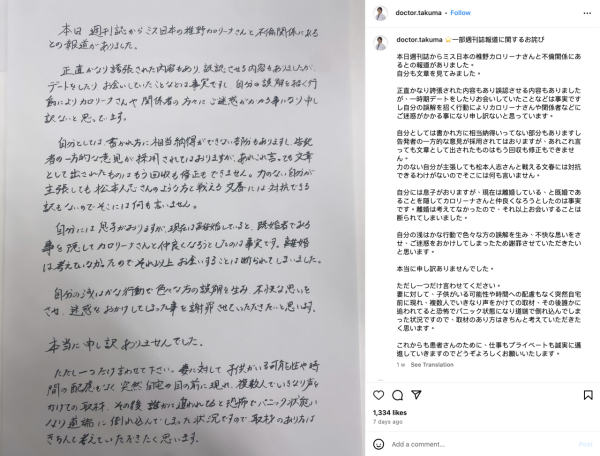 本日週刊誌からミス日本の椎野カロリーナさんと不倫関係にある
との報道がありました。
正直かなり誇張された内容もあり、誤認させる内容もありましたが、
デートをしたりお会いしていたことなどは事実ですし自分の誤解を招く行
動によりカロリーナさんや関係者の方々にご迷惑がかかる事になり申し
訳ないと思っています。
自分としては書かれ方に相当納得ができない部分もありますし、告発
者の一方的な意見が採用されてはおりますが、あれこれ言っても文章
として出されたものはもう回収も修正もできません。力のない自分が
主張しても松本人志さんのような方と戦える文春には対抗できる
訳もないのでそこには何も言いません。
自分には息子がおりますが、現在は離婚していると、既婚者である
事を隠してカロリーナさんと仲良くなろうとしたのは事実です。離婚
は考えていなかったのでそれ以上お会いすることは断られてしまいました。
自分の浅はかな行動で色々な方の誤解を生み、不快な思いをさ
せ、迷惑をおかけしてしまった事を謝罪させていただきたいと思います。
本当に申し訳ありませんでした。
ただし一つだけ言わせて下さい。妻に対して子供がいる可能性や時
間の配慮もなく突然自宅の目の前に現れ、複数人でいきなり声を
かけての取材、その後誰かに追われてると恐怖でパニック状態に
なり道端に倒れ込んでしまった状況ですので、取材のあり方は
きちんと考えていただきたく思います。
doctor.takuma • Follow
doctor.takuma ⭐一部週刊誌報道に関するお詫び
本日週刊誌からミス日本の椎野カロリーナさんと不倫関係にあ
るとの報道がありました。
自分も文章を見てみました。
正直かなり誇張された内容もあり誤認させる内容もありました
が、一時期デートをしたりお会いしていたことなどは事実です
し自分の誤解を招く行動によりカロリーナさんや関係者などに
ご迷惑がかかる事になり申し訳ないと思っています。
自分としては書かれ方に相当納得いってない部分もありますし
告発者の一方的な意見が採用されてはおりますが、あれこれ言
っても文章として出されたものはもう回収も修正もできませ
ん。
力のない自分が主張しても松本人志さんと戦える文春には対抗
できるわけがないのでそこには何も言いません。
自分には息子がおりますが、現在は離婚している、と既婚であ
ることを隠してカロリーナさんと仲良くなろうとしたのは事実
です。離婚は考えてなかったので、それ以上お会いすることは
断られてしまいました。
自分の浅はかな行動で色々な方の誤解を生み、不快な思いをさ
せ、ご迷惑をおかけしてしまったため謝罪させていただきたい
と思います。
本当に申し訳ありませんでした。
ただし一つだけ言わせてください。
妻に対して、子供がいる可能性や時間への配慮もなく突然自宅
前に現れ、複数人でいきなり声をかけての取材、その後誰かに
追われてると恐怖でパニック状態になり道端で倒れ込んでしま
った状況ですので、取材のあり方はきちんと考えていただきた
く思います。
これからも患者さんのために、仕事もプライベートも誠実に邁
進していきますのでどうぞよろしくお願いいたします。
1 w See Translation
1,334 likes
7 days ago
Add a comment...
Post